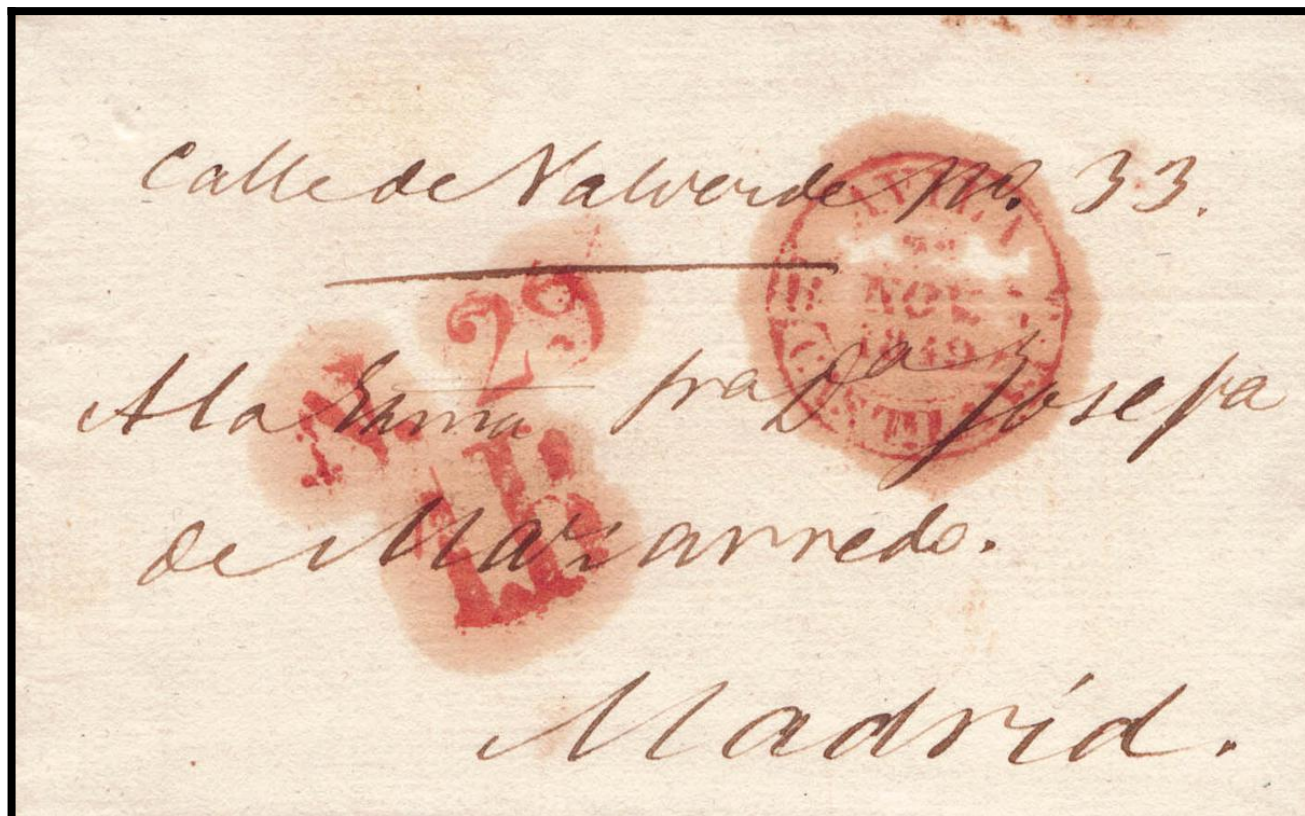 Calle de Valverde No. 33.
AVILA
NOV
1849
29
A la Exma Sra Da Josefa
de Mazarredo.
Madrid.